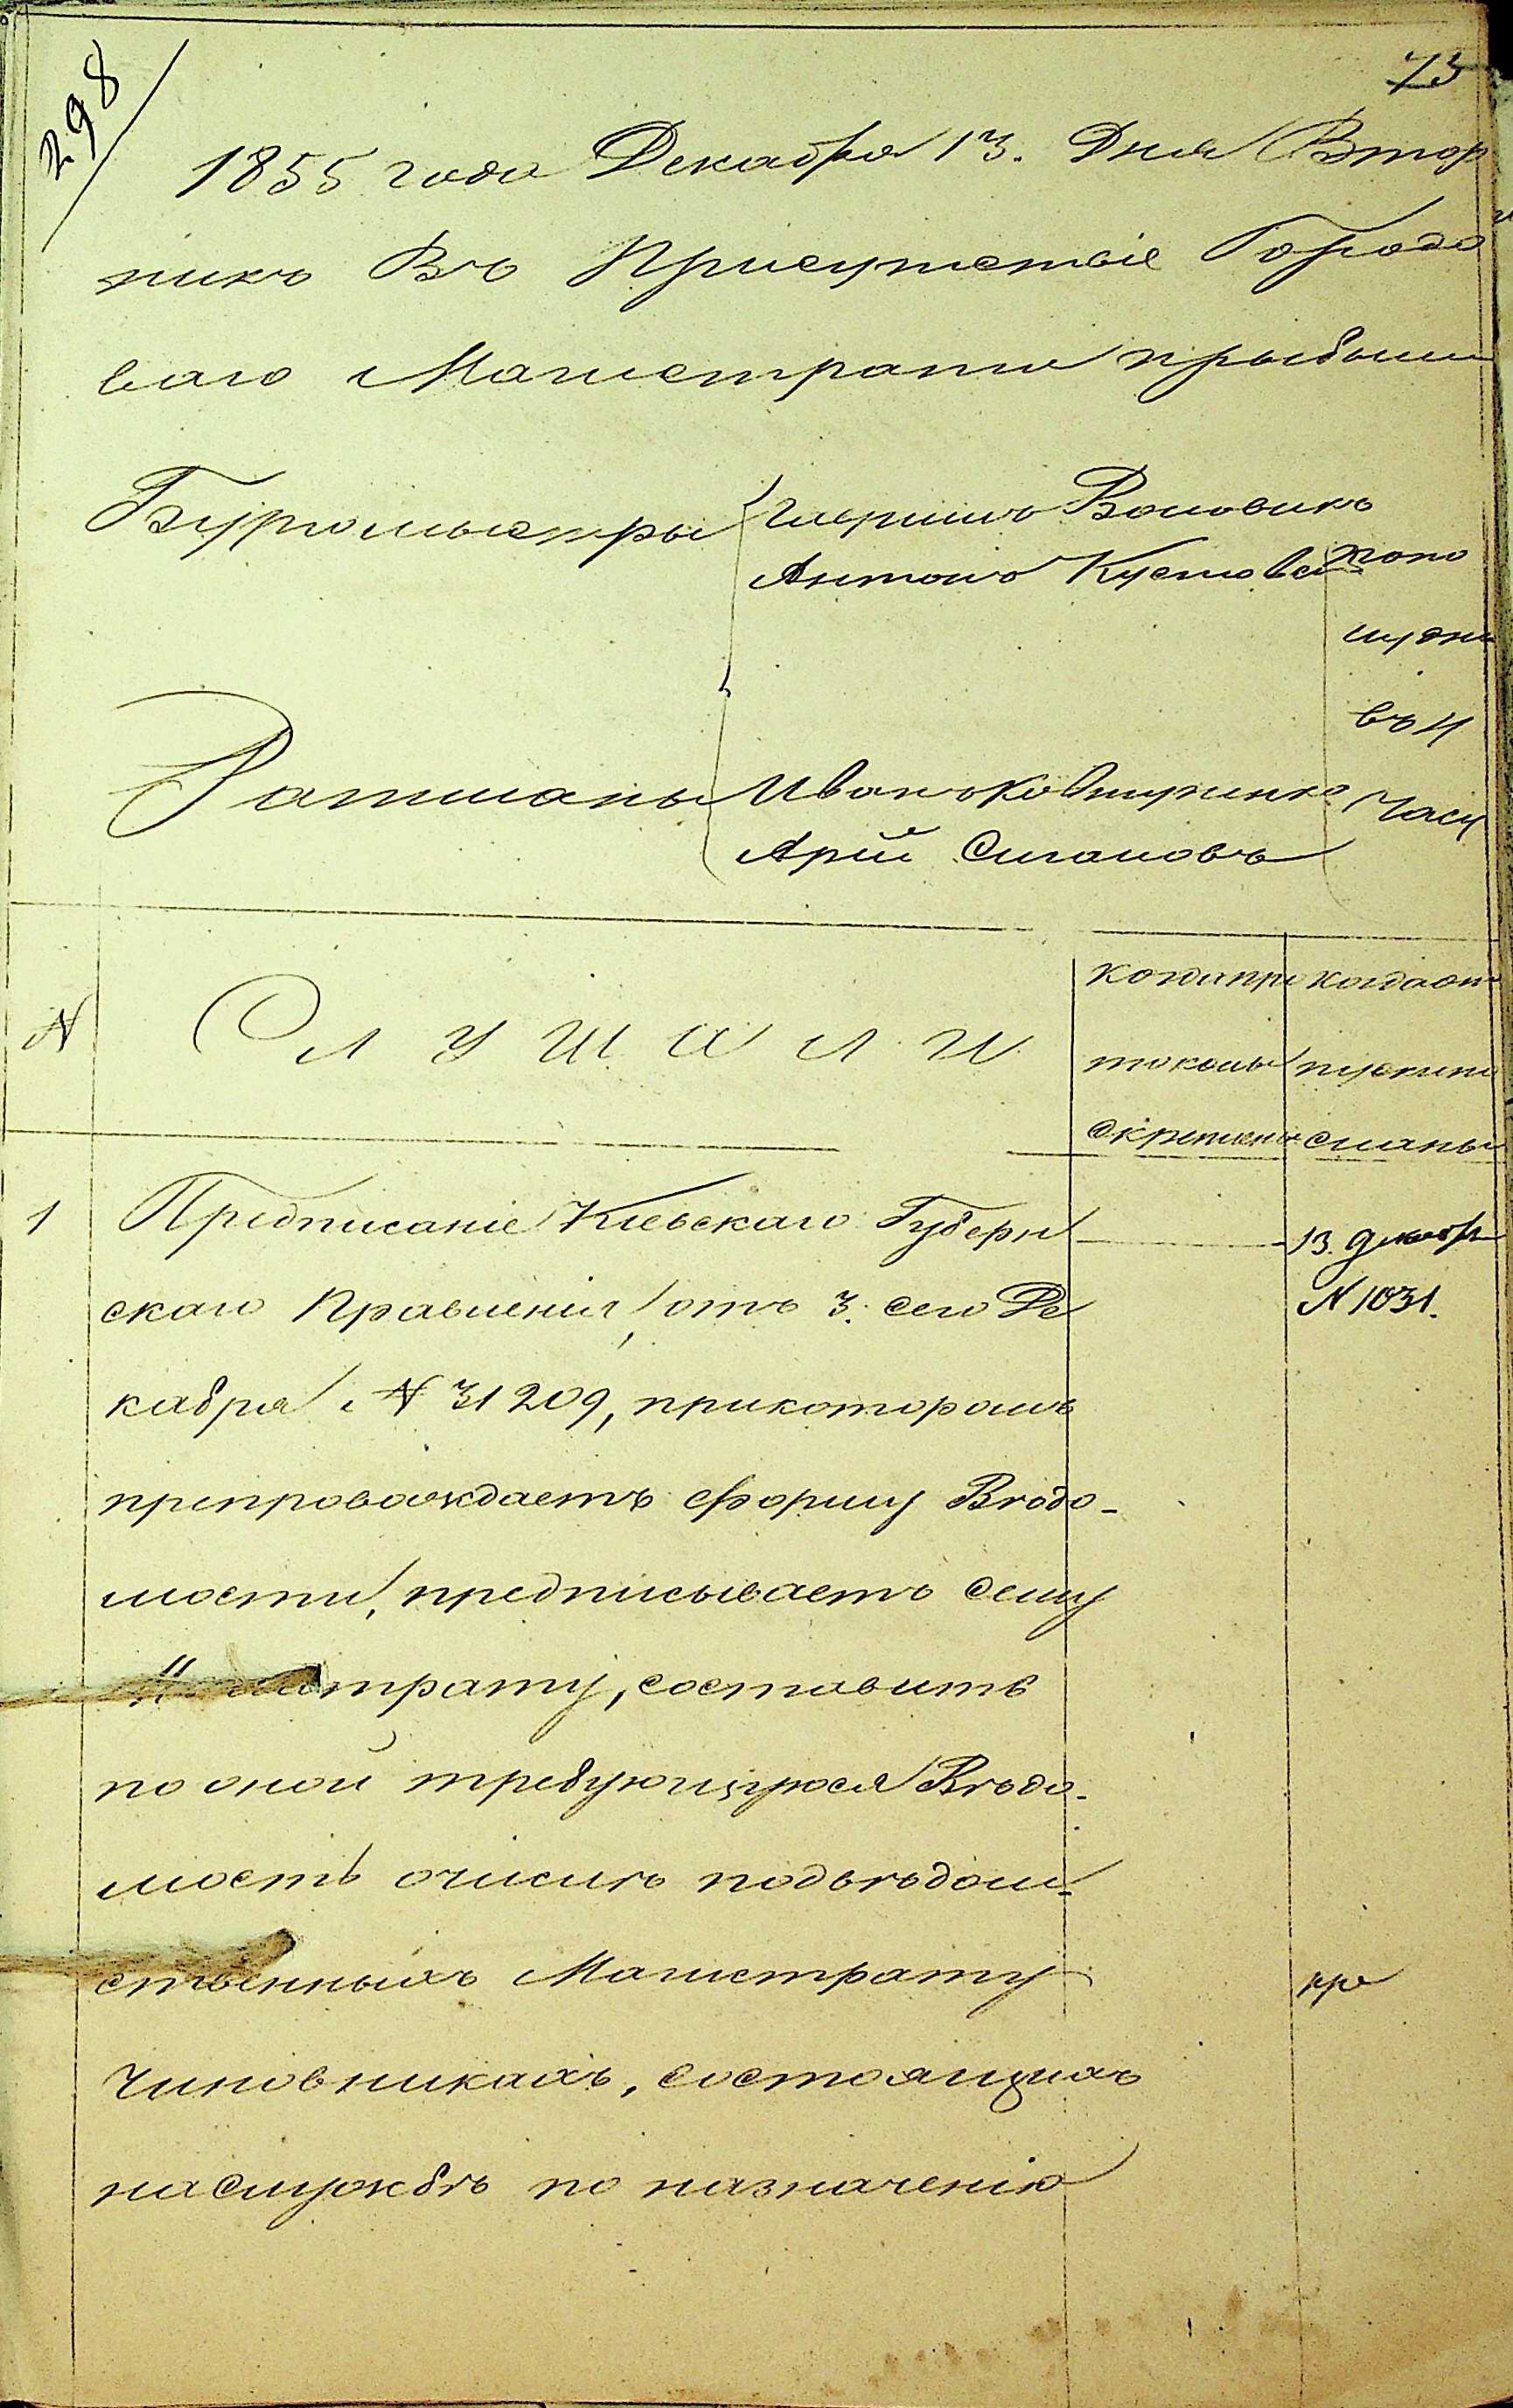 298
73
1855 года Декабря 13. Дня Втор
никъ Въ Присутствіе Городо
ваго Магистрата прыбыли
Бургомыстры
Гаврiилъ Воловикъ
Антонъ
Ратманы
Иванъ
Арій Слгановъ
попо
лудни
въ 4
часу
N
СЛУШАЛИ
когда про
токолы
скреплены
когда от
пуски по
сланы
1
Предписаніе Кіевскаго Губерн
скаго Правленія, отъ 3. сего Де
кабря N 31209, прикоторомъ
препровождаетъ форму Вѣдо-
мости, предписываетъ Сему
страту, составить
по оной требующуюся Вѣдо-
мость очислѣ подвѣдом-
ственныхъ Магистрату
Чиновникахъ, состоящихъ
наслужбѣ по назначенію
13. декабр
N 1031.